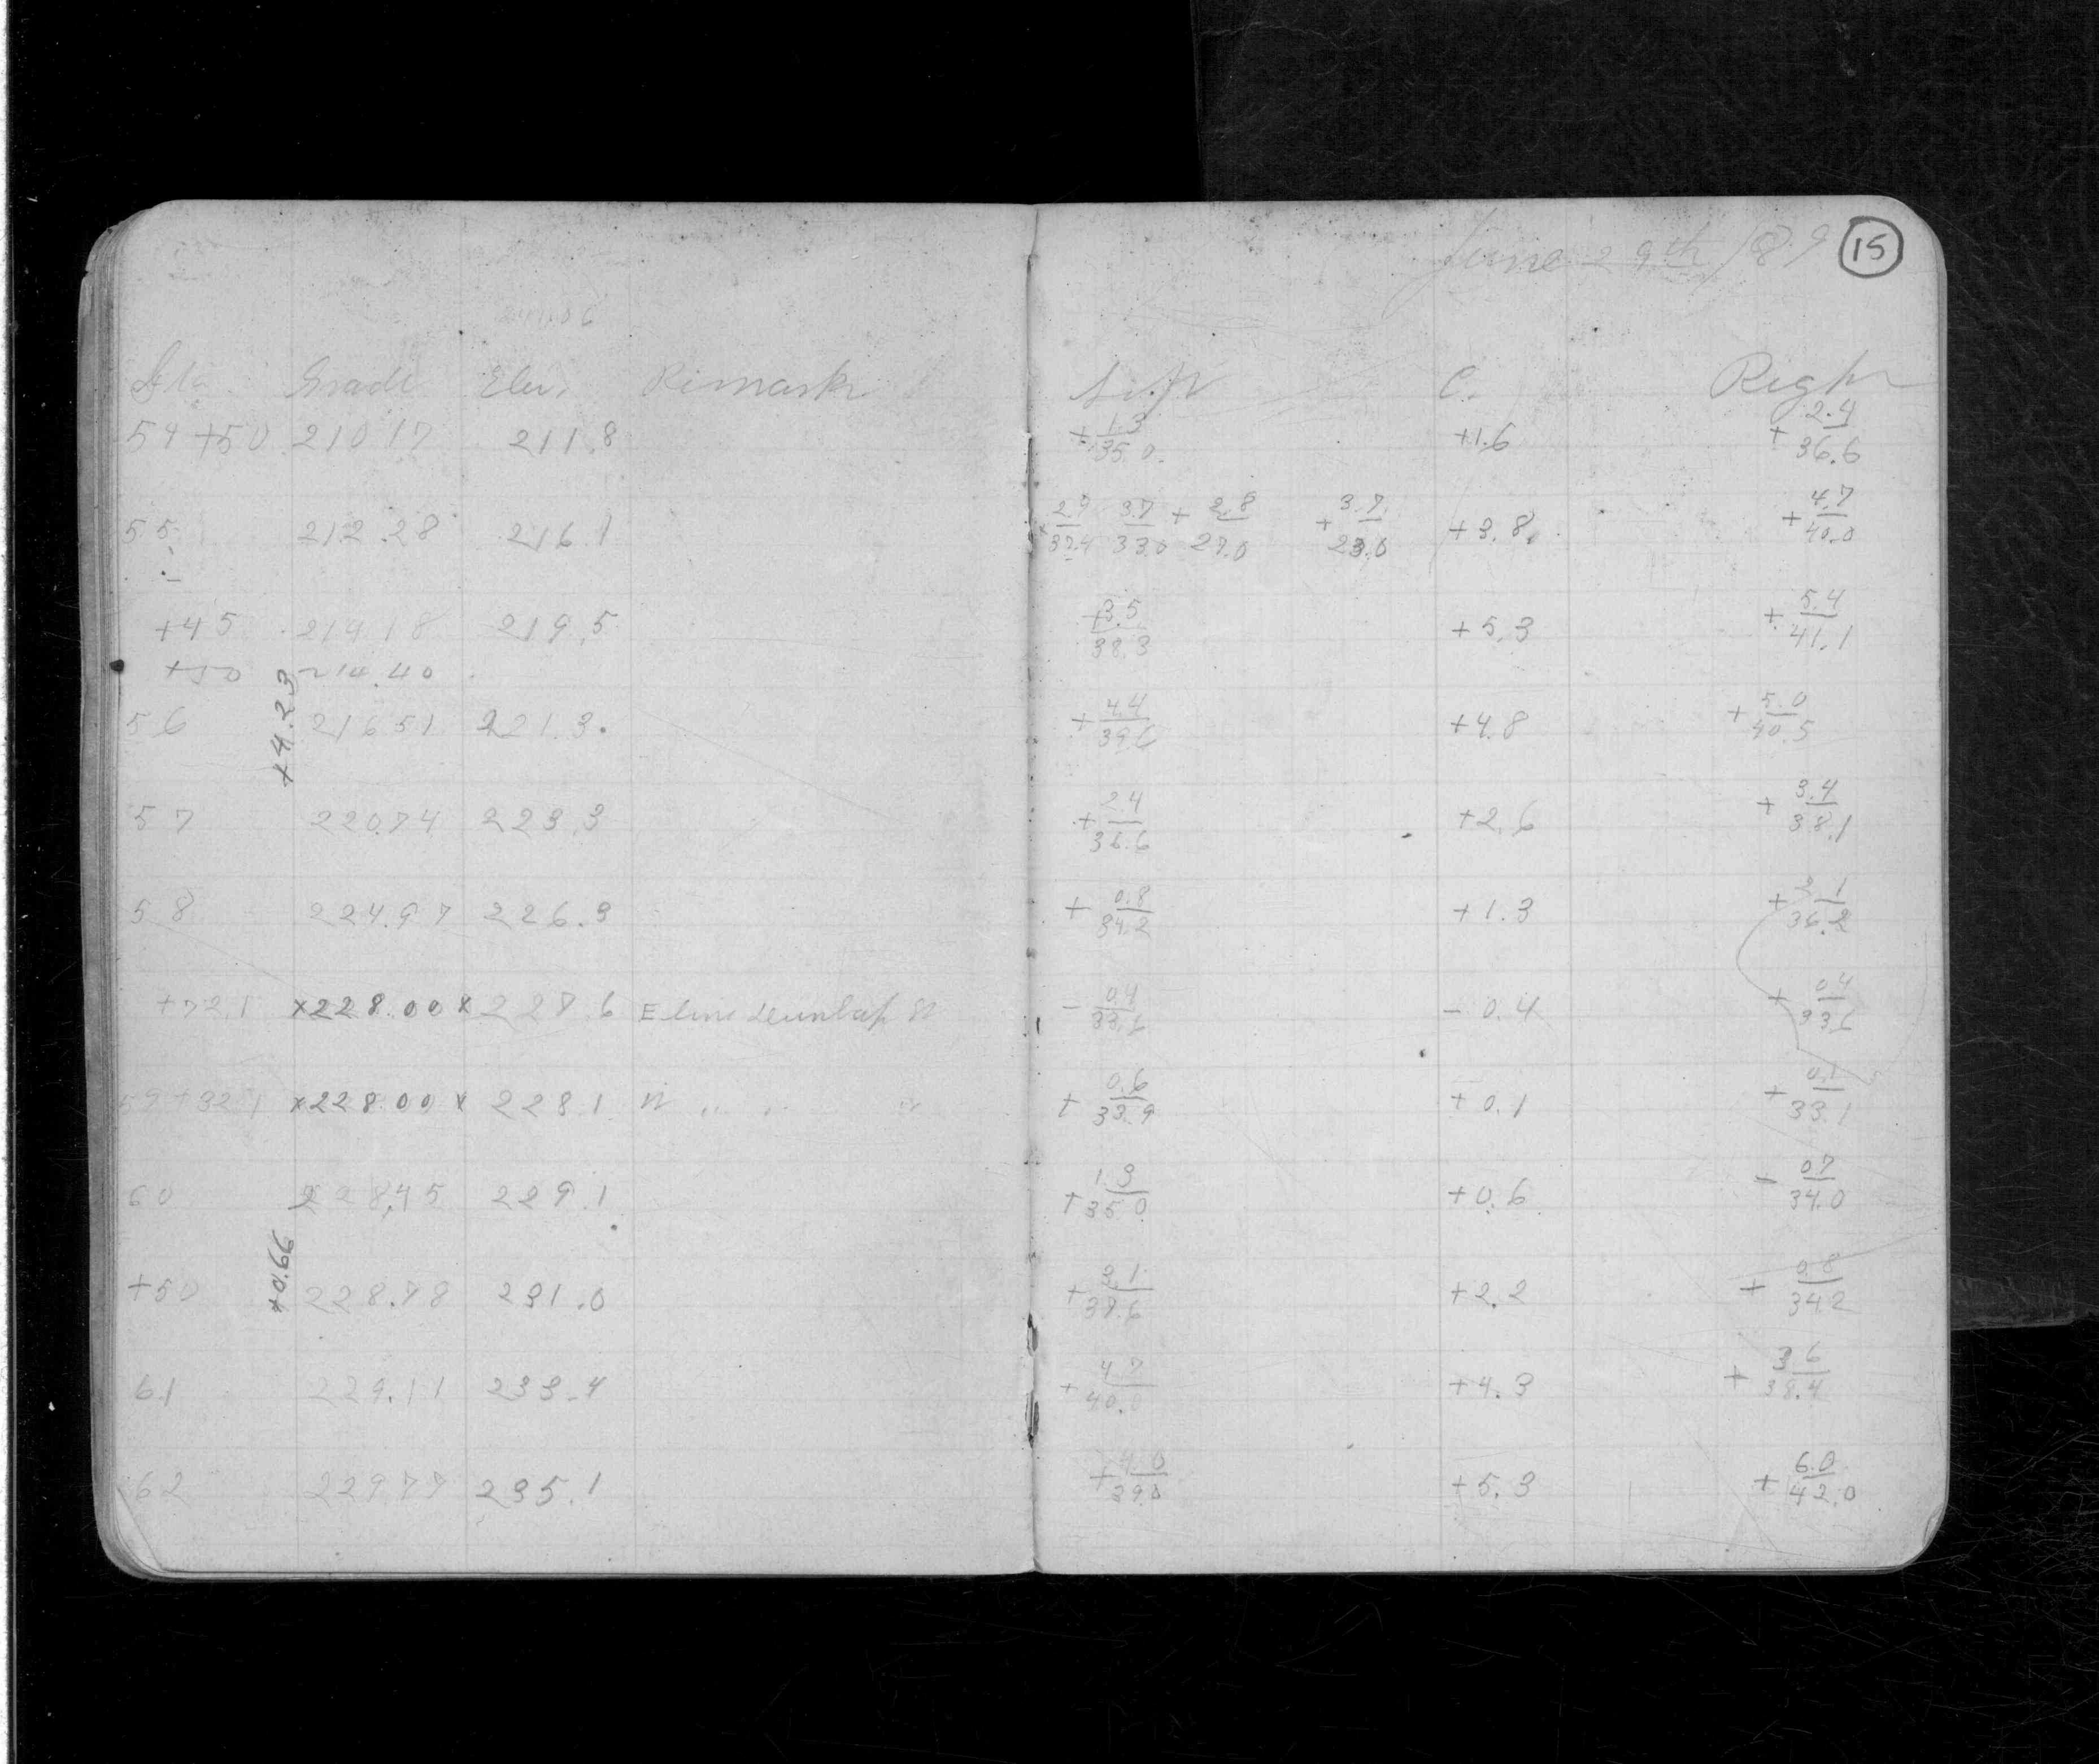 June 29th /89
15
Sta. Grade Elev. Remarks Left C. Right
54 +50 210.17 211.8 +1.3/35.0 +1.6 +2.4/36.6
55 212.28 216.1 2.9/37.4 3.7/33.0 + 2.8/27.0 +3.7/23.0 +3.8 +4.7/40.0
+45 214.18 219.5 +3.5/38.3 +5.3 +5.4/41.1
+50 214.40
+4.23
56 216.51 221.3 +4.4/39.6 +4.8 +5.0/40.5
57 220.74 223.3 +2.4/36.6 +2.6 +3.4/38.1
58 224.97 226.3 +0.8/34.2 +1.3 +2.1/36.2
+72.1 x228.00x 227.6 E line Dunlap St -0.4/33.6 -0.4 +0.4/33.6
59+32.1 x228.00x 228.1 W " " " +0.6/33.9 +0.1 +0.1/33.1
60 228.45 229.1 +1.3/35.0 +0.6 -0.7/34.0
+0.66
+50 228.78 231.0 +3.1/37.6 +2.2 +0.8/34.2
61 229.11 233.4 +4.7/40.0 +4.3 +3.6/38.4
62 229.77 235.1 +4.0/39.0 +5.3 +6.0/42.0